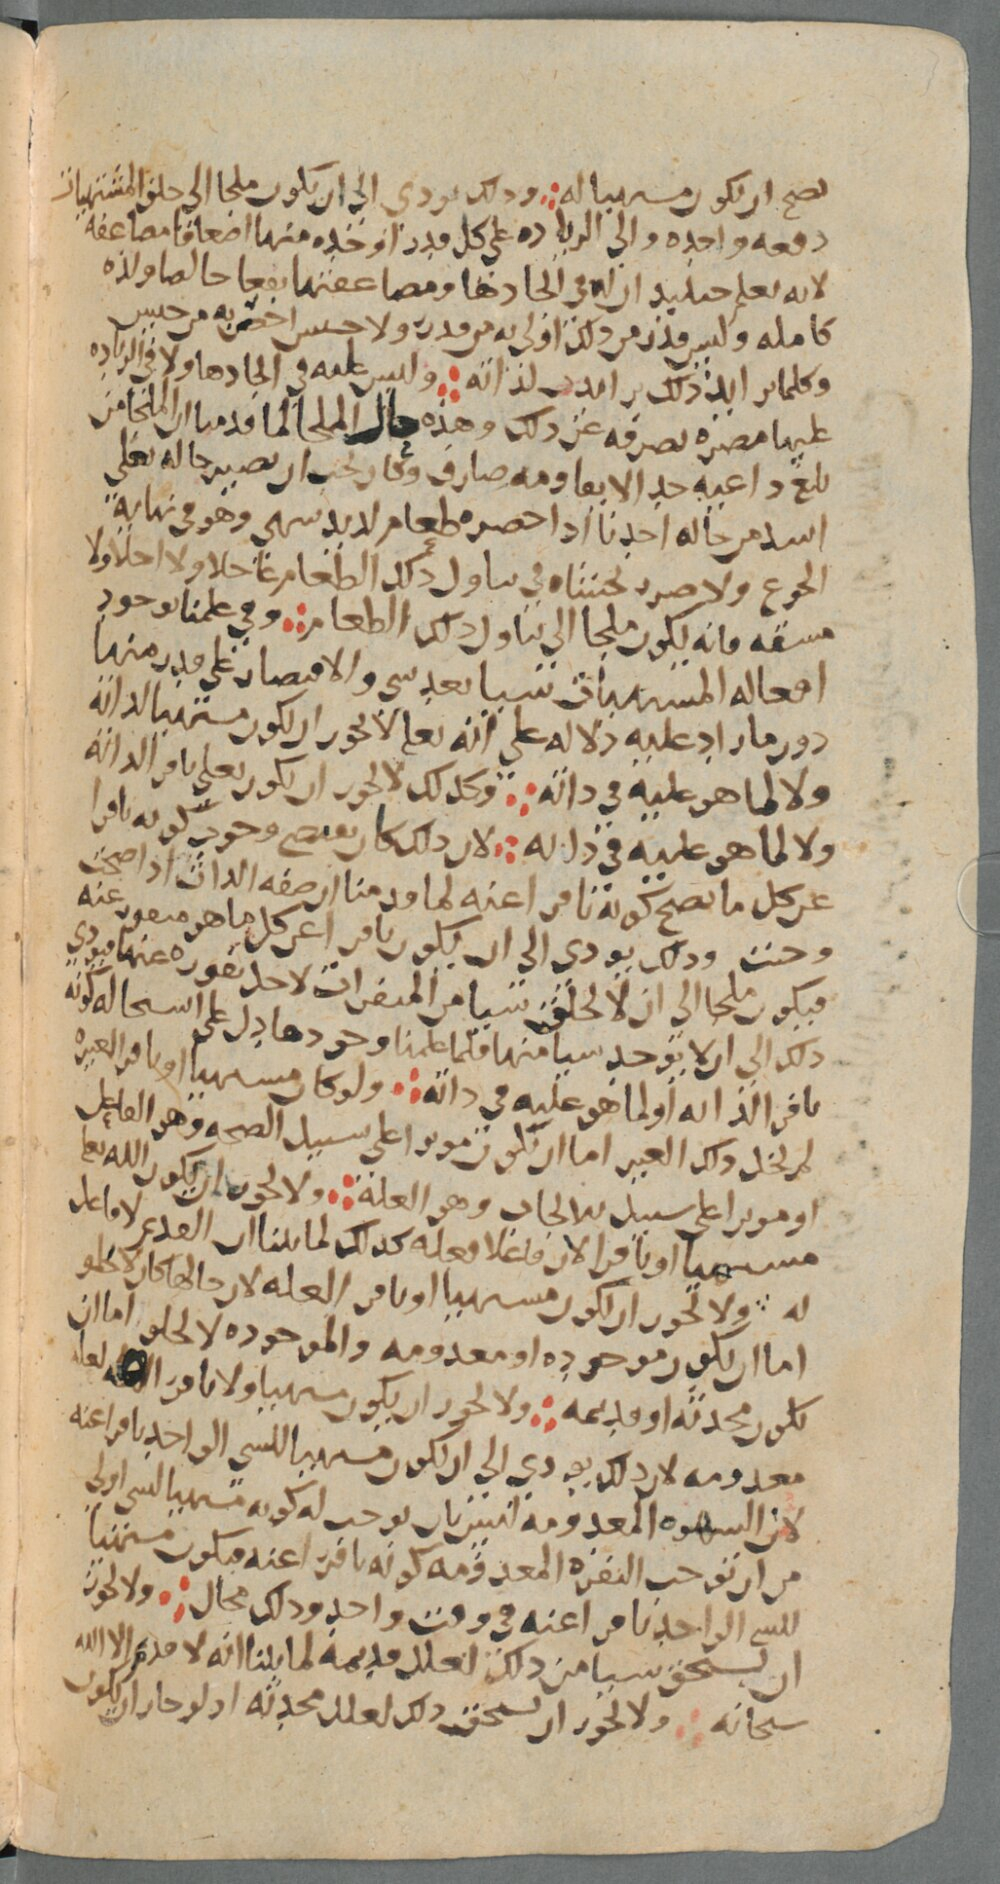 يصح ان يكون مشتهيا له ۞ وذلك يودي الى ان يكون ملجا الى خلق المشتهيات
دفعه واحده والى الزياده على كل قدر اوجده منها اضعافا مضاعفه
لانه يعلم حينيذ ان له في ايجادها ومضاعفتها نفعا خالصا ولذه
كامله وليس قدر من ذلك اولى به من قدر ولا جنس اخص به من جنس
وكلما تزايد ذلك تزايدت لذاته ۞ وليس عليه في ايجادها ولا في الزياده
عليها مضره تصرفه عن ذلك وهذه حال الملجا لما قدمنا ان الملجا من
بلغ داعيه حدا لا يقاومه صارف وكان يجب ان تصير حاله تعلى
اشد من حاله احدنا اذا حضره طعام لذيذ شهي وهو في نهايه
الجوع ولا ضرر يخشاه في تناول ذلك الطعام عاجلا ولا اجلا ولا
مشقه فانه يكون ملجا الى تناول ذلك الطعام ۞ وفي علمنا بوجود
افعاله المشتهيات شيا بعد شي والاقتصار على قدر منها
دون ما زاد عليه دلاله على انه تعلى لا يجوز ان يكون مشتهيا لذاته
ولا لما هو عليه في ذاته ۞ وكذلك لا يجوز ان يكون تعلى نافرا لذاته
ولا لما هو عليه في ذاته ۞ لان ذلك كان يقتضي وجوب كونه نافرا
عن كل ما يصح كونه نافرا عنه لما قدمنا ان صفه الذات اذا صحت
وجبت وذلك يودي الى ان يكون نافرا عن كل ما هو منفور عنه
فيكون ملجا الى ان لا يخلق شيا من المنفرات لاجل نفوره عنها فيودي
ذلك الى ان لا يوجد شيا منها فلما علمنا وجودها دل على استحاله كونه
نافرا لذاته او لما هو عليه في ذاته ۞ ولو كان مشتهيا او نافرا لغيره
لم يخل ذلك الغير اما ان يكون موثرا على سبيل الصحه وهو الفاعل
او موثرا على سبيل الايجاب وهو العله ۞ ولا يجوز ان يكون الله تعلى
مشتهيا او نافرا لان فاعلا فعله كذلك لما بينا ان القديم لا فاعل
له ۞ ولا يجوز ان يكون مشتهيا او نافرا لعله لان حالها كان لا يخلو
اما ان تكون موجوده او معدومه والموجوده لا تخلو اما ان
تكون محدثه او قديمه ۞ ولا يجوز ان يكون مشتهيا ولا نافرا لعله
معدومه لان ذلك يودي الى ان يكون مشتهيا للشي الواحد نافرا عنه
لان الشهوه المعدومه ليس بان توجب له كونه مشتهيا للشي اولى
من ان توجب النفره المعدومه كونه نافرا عنه فيكون مشتهيا
للشي الواحد نافرا عنه في وقت واحد وذلك محال ۞ ولا يجوز
ان يستحق شيا من ذلك لعلل قديمه لما بينا انه لا قديم الا الله
سبحانه ۞ ولا يجوز ان يستحق ذلك لعلل محدثه اذ لو جاز ان يكون